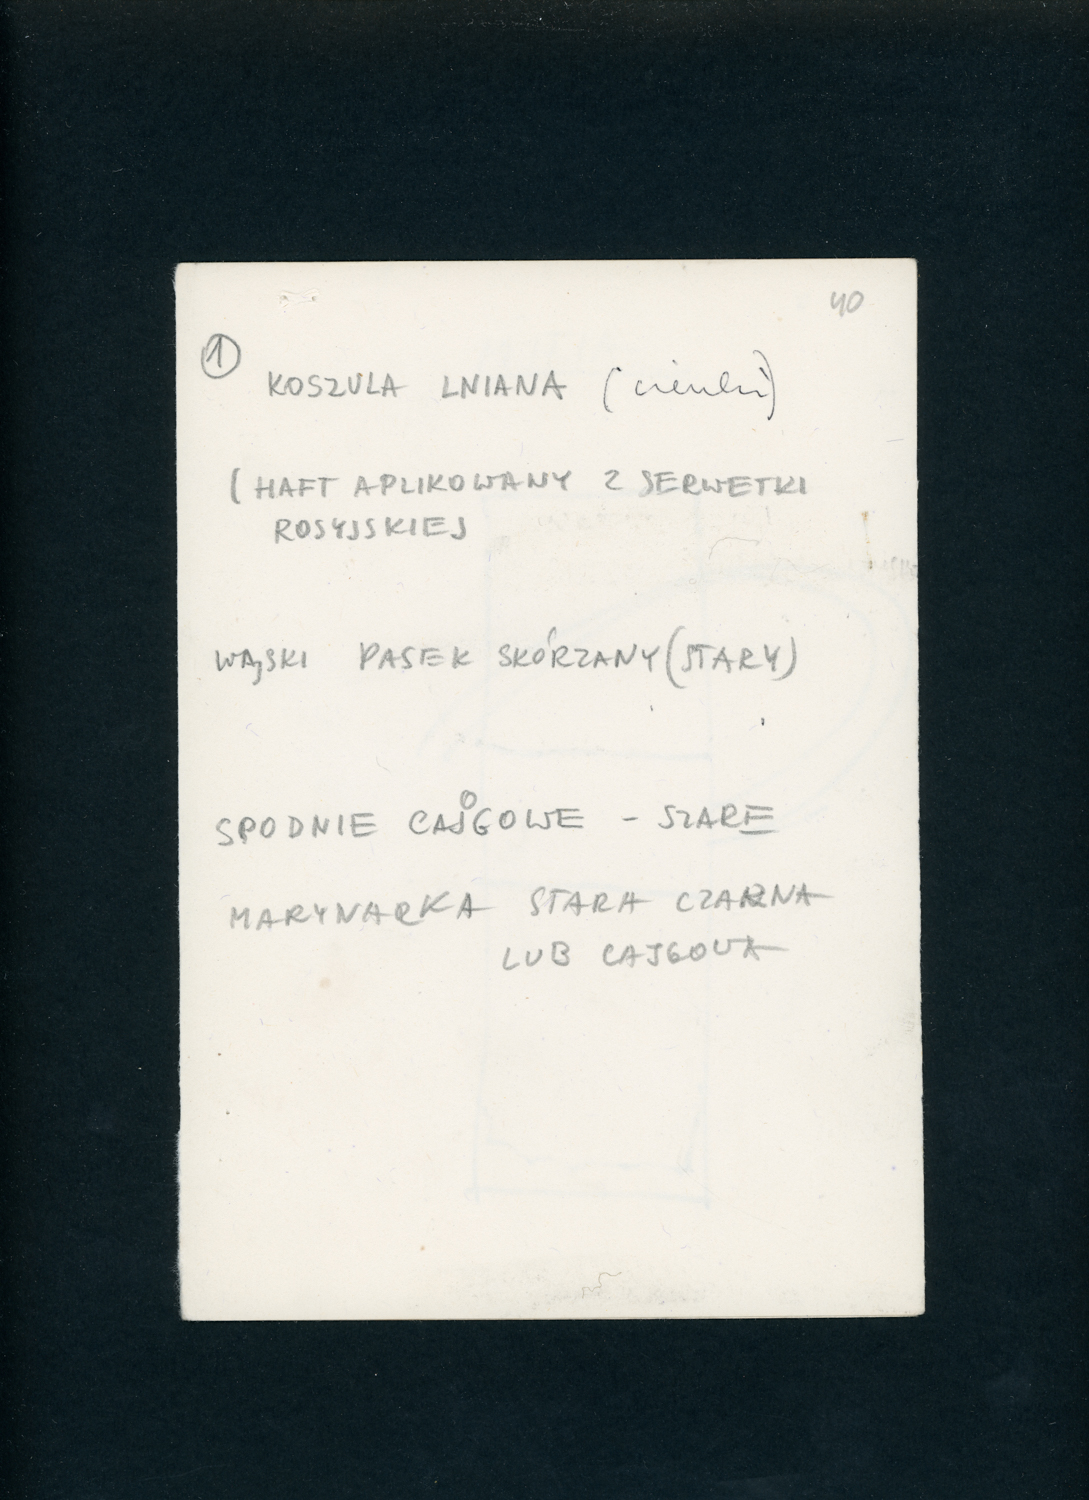 40
①
KOSZULA LNIANA (cienki)
(HAFT APLIKOWANY Z SERWETKI
ROSYJSKIEJ
WĄSKI PASEK SKÓRZANY (STARY)
SPODNIE CAJGOWE - SZARE
MARYNARKA STARA CZARNA
LUB CAJGOWA